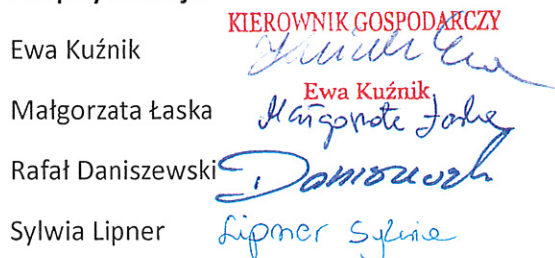 KIEROWNIK GOSPODARCZY
Ewa Kuźnik
Kuźnik Ewa
Ewa Kuźnik
Małgorzata Łaska
Małgorzata Łaska
Rafał Daniszewski
Daniszewski
Sylwia Lipner
Lipner Sylwia